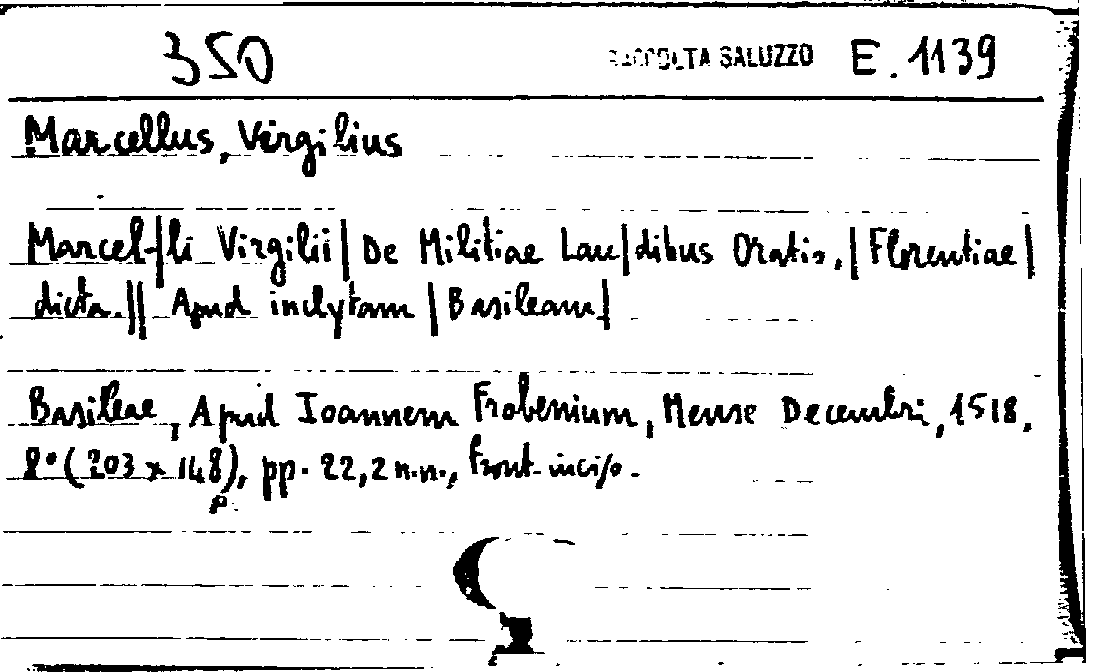 350 RACCOLTA SALUZZO E. 1139
Marcellus, Virgilius
Marcel|li Virgilii| De Militiae Lau|dibus Oratio.| Florentiae|
dicta.|| Apud inclytam | Basileam|
Basileae, Apud Ioannem Frobenium, Mense Decembri, 1518.
8° (203 x 148), pp. 22, 2 n.n., front. inciso.